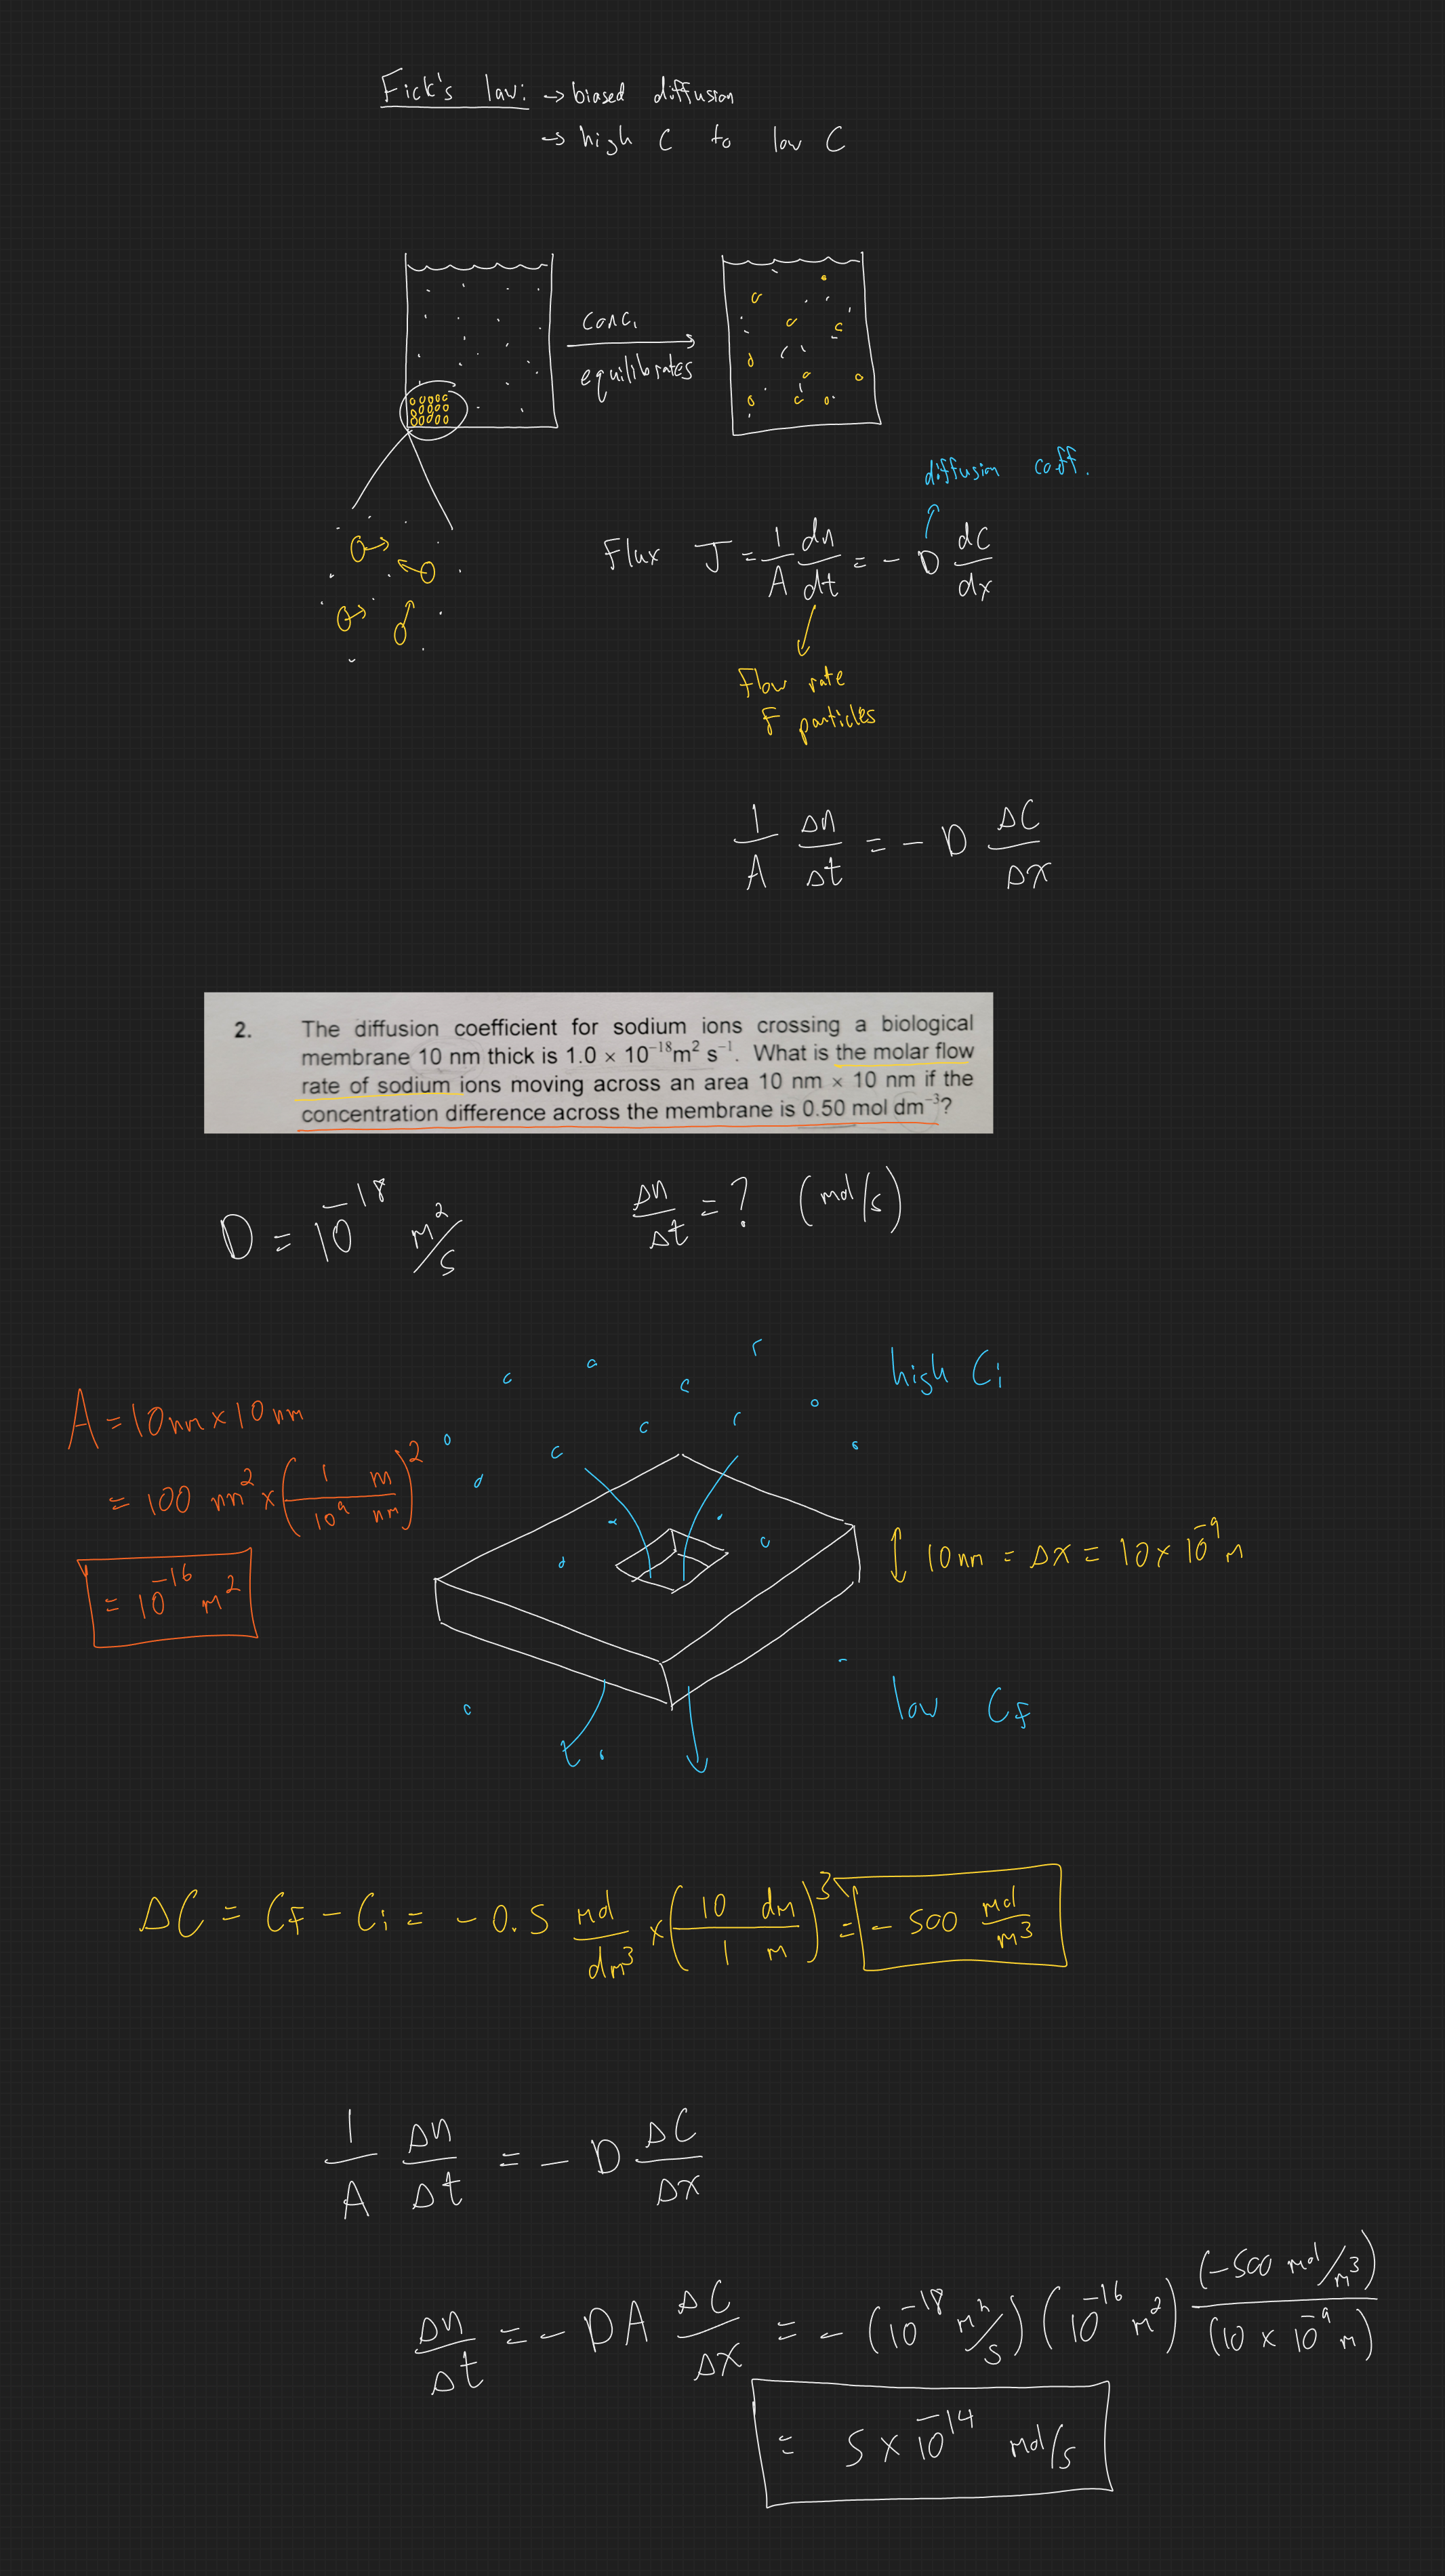 Fick's law: → biased diffusion
→ high C to low C
conc.
equilibrates
diffusion coeff.
Flux J = 1/A dn/dt = - D dC/dx
Flow rate
F particles
1/A Δn/Δt = - D ΔC/Δx
2. The diffusion coefficient for sodium ions crossing a biological
membrane 10 nm thick is 1.0 × 10⁻¹⁸m² s⁻¹. What is the molar flow
rate of sodium ions moving across an area 10 nm × 10 nm if the
concentration difference across the membrane is 0.50 mol dm⁻³?
D = 10⁻¹⁸ m²/s
Δn/Δt = ? (mol/s)
high Ci
A = 10nm × 10nm
= 100 nm² × (1 m / 10⁹ nm)²
= 10⁻¹⁶ m²
10nm = Δx = 10 × 10⁻⁹ m
low CF
ΔC = CF - Ci = - 0.5 mol/dm³ × (10 dm / 1 m)³ = - 500 mol/m³
1/A Δn/Δt = - D ΔC/Δx
Δn/Δt = - DA ΔC/Δx = - (10⁻¹⁸ m²/s) (10⁻¹⁶ m²) (-500 mol/m³)/(10 × 10⁻⁹ m)
= 5 × 10⁻¹⁴ mol/s